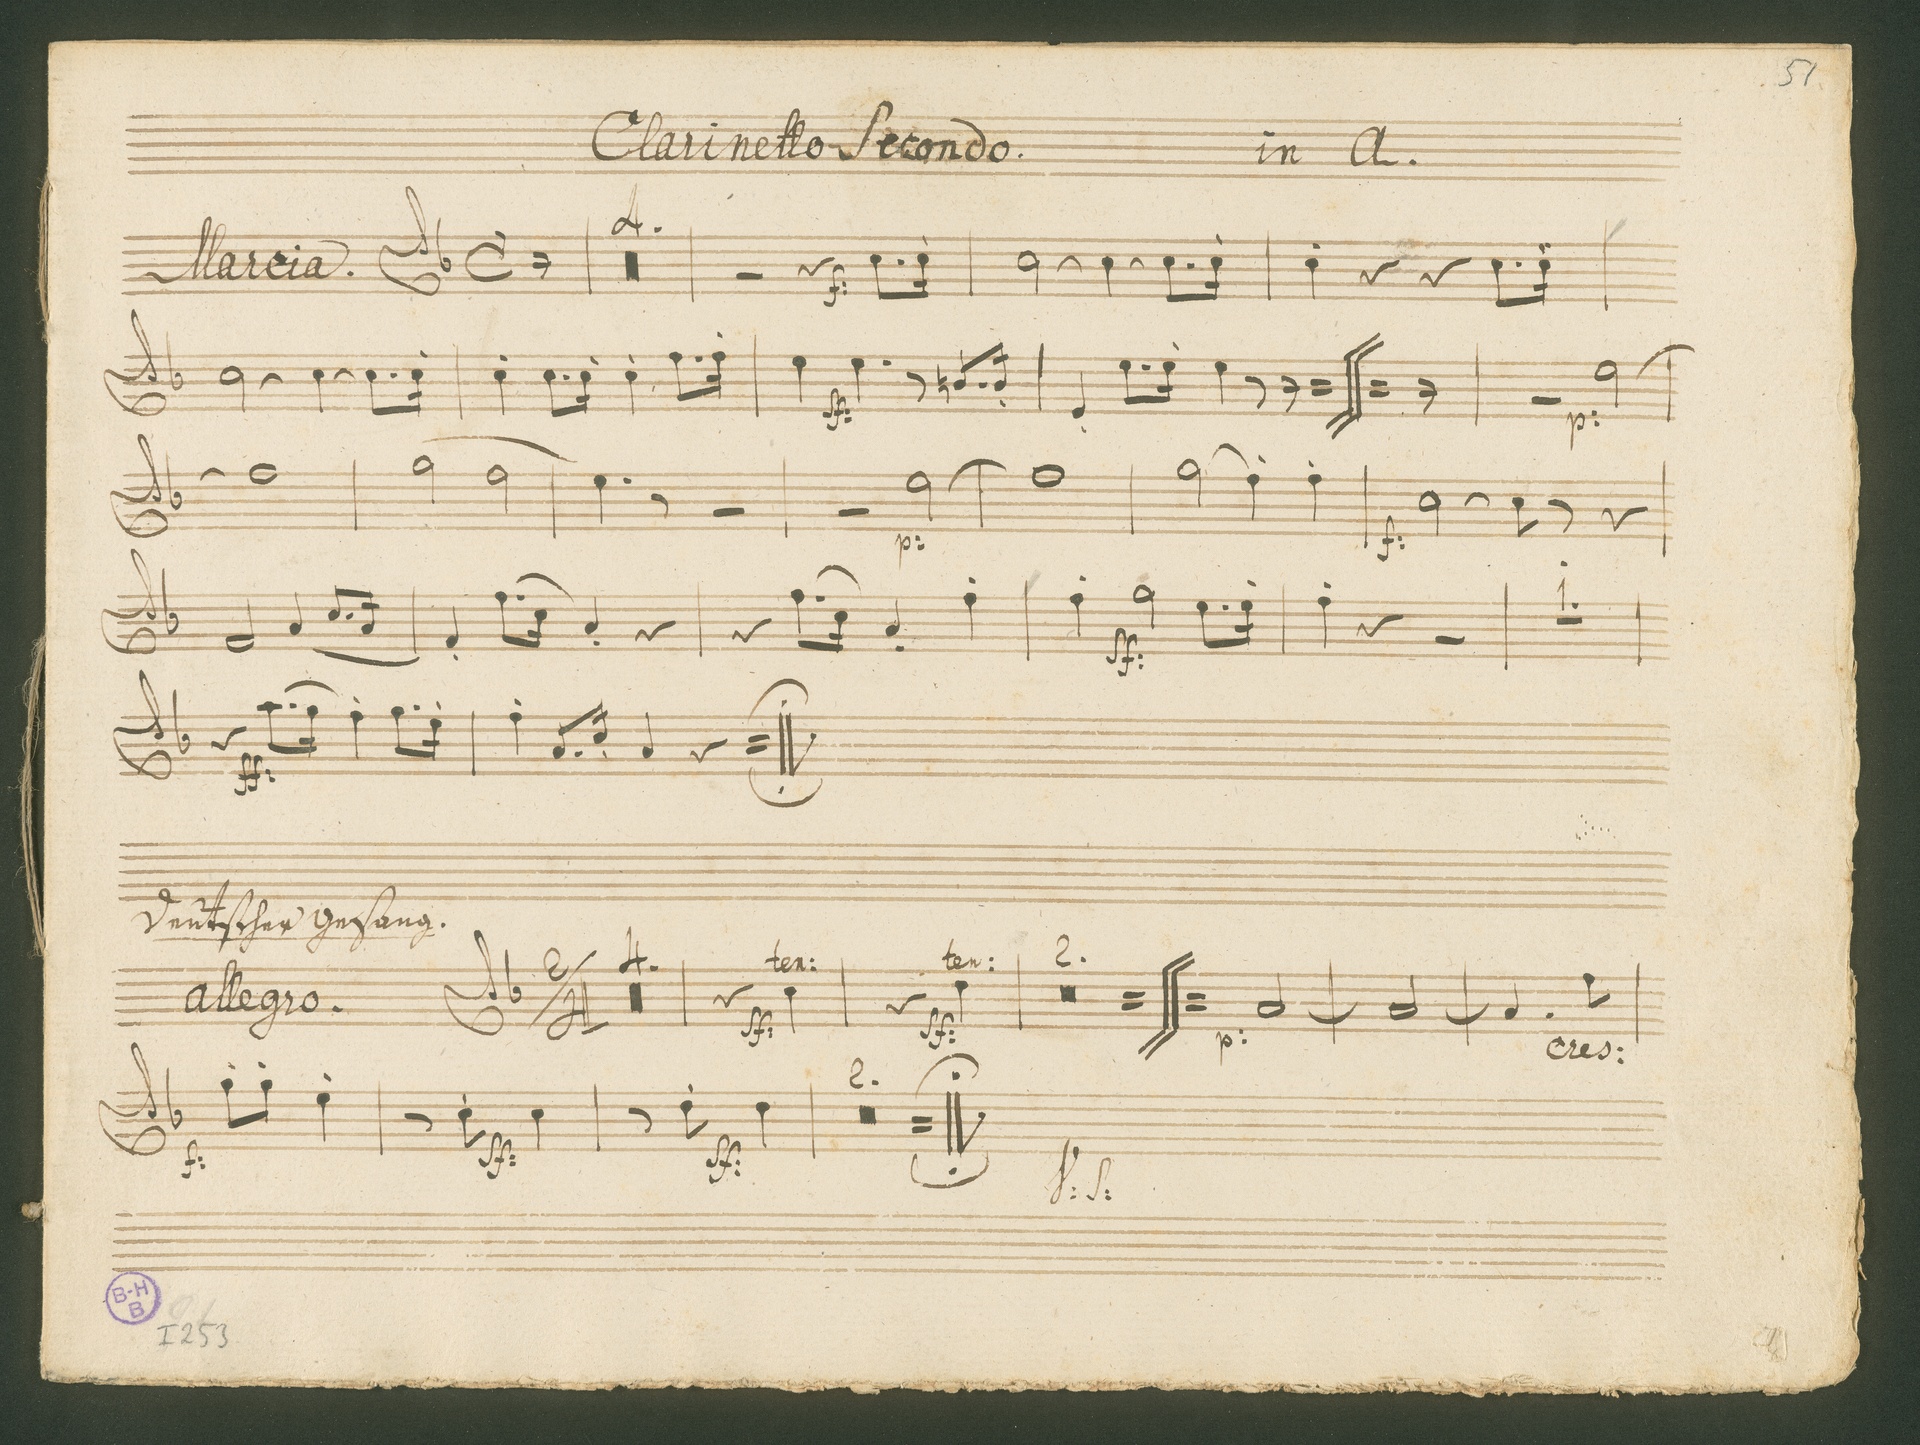 51.
Clarinetto Secondo. in A.
Marcia. 4. f:
sf: p:
p: f:
sf: 1.
ff:
Deutscher Gesang.
allegro. 2/4 4. sf: ten: sf: ten: 2. p: cres:
f: sf: sf: 2.
V: S:
B-H
B
I 253